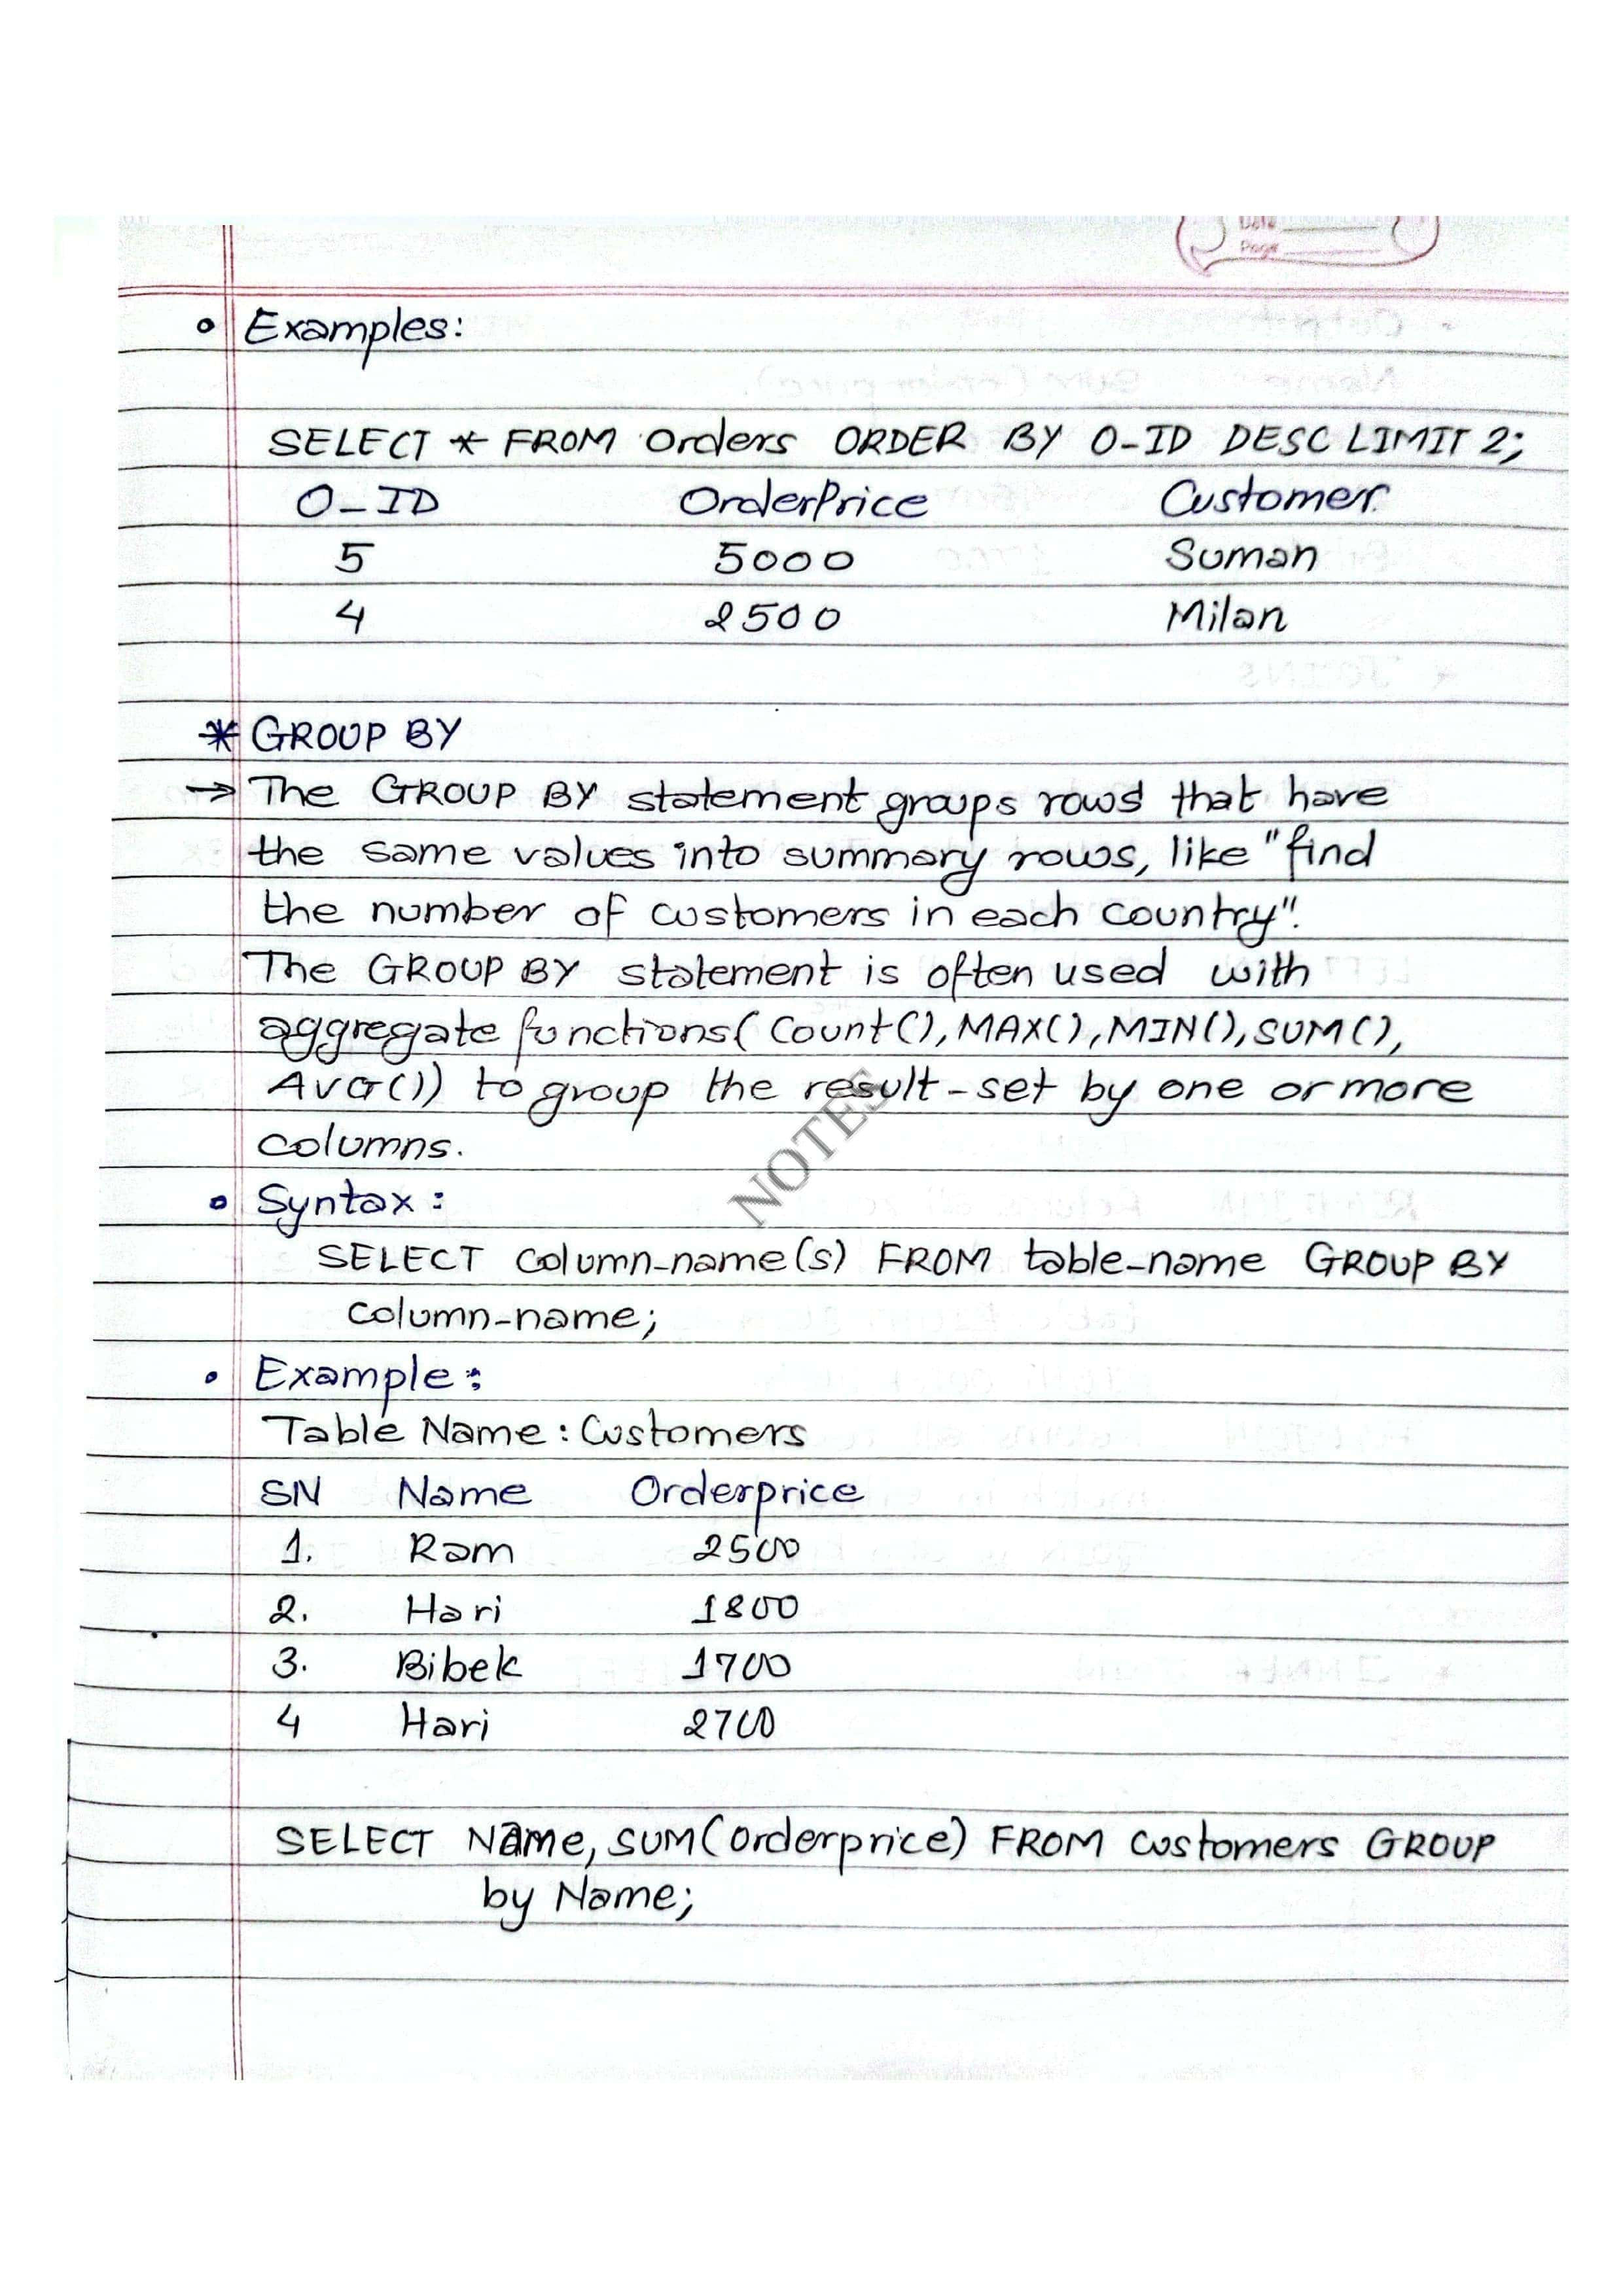 Date
Page
Examples:
SELECT * FROM Orders ORDER BY O-ID DESC LIMIT 2;
O-ID OrderPrice Customer
5 5000 Suman
4 2500 Milan
* GROUP BY
→ The GROUP BY statement groups rows that have
the same values into summary rows, like "find
the number of customers in each country".
The GROUP BY statement is often used with
aggregate functions( Count(), MAX(), MIN(), SUM(),
AVG()) to group the result-set by one or more
columns.
NOTES
• Syntax:
SELECT column-name(s) FROM table-name GROUP BY
column-name;
• Example:
Table Name: Customers
SN Name Orderprice
1. Ram 2500
2. Hari 1800
3. Bibek 1700
4 Hari 2700
SELECT Name, SUM(orderprice) FROM customers GROUP
by Name;